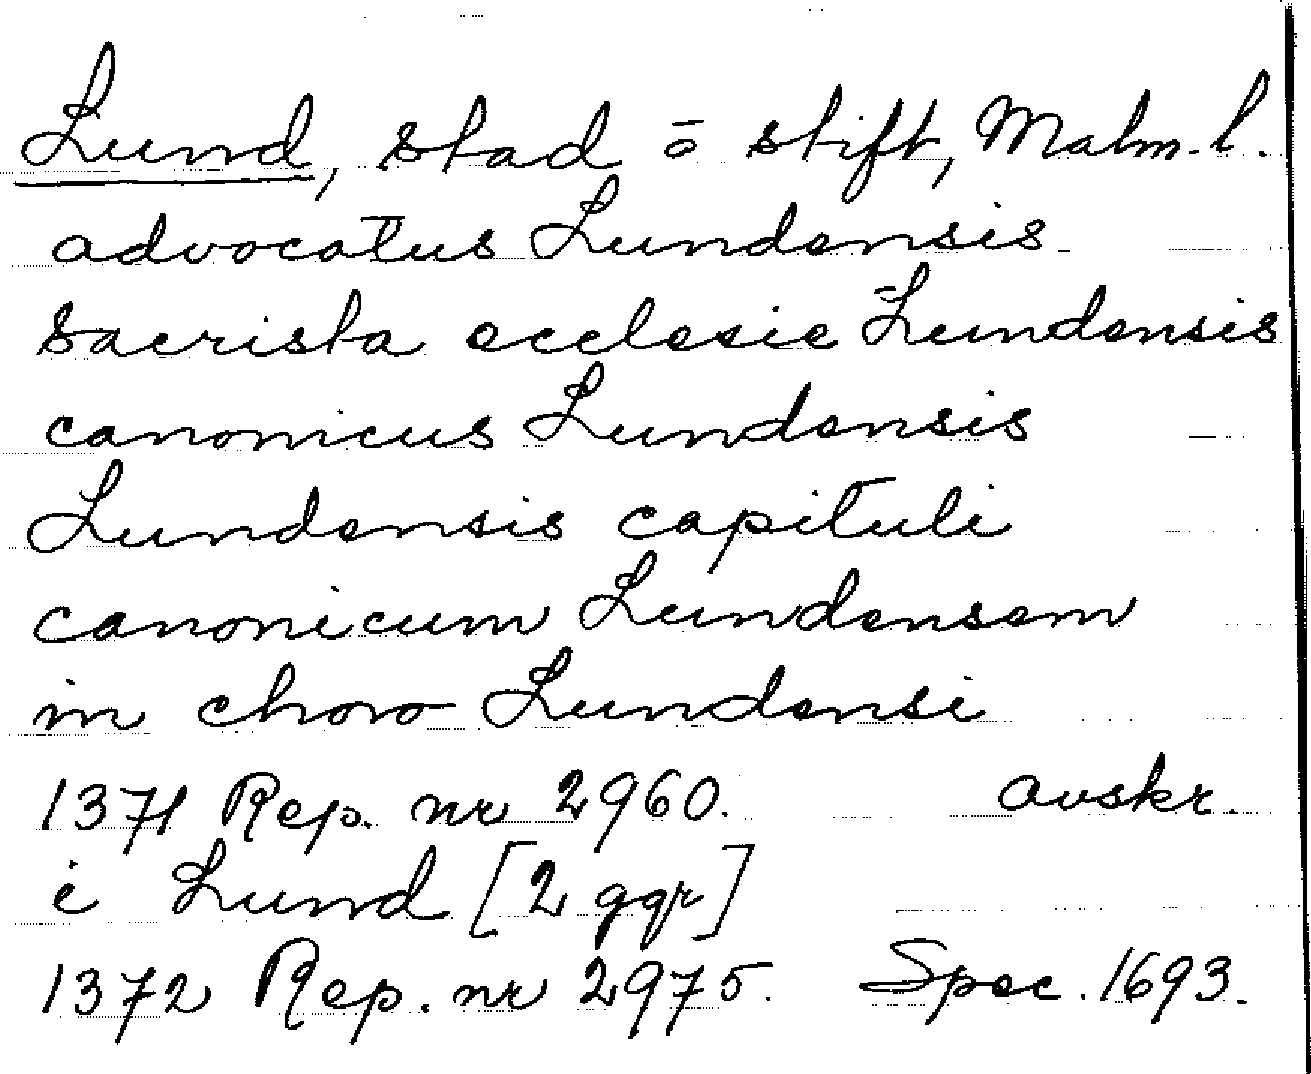 Lund, stad o stift, Malm. l.
advocatus Lundensis
sacrista ecclesie Lundensis
canonicus Lundensis
Lundensis capituli
canonicum Lundensem
in choro Lundensi
1371 Rep. nr 2960. avskr.
i Lund [2 ggr]
1372 Rep. nr 2975. Spec. 1693.